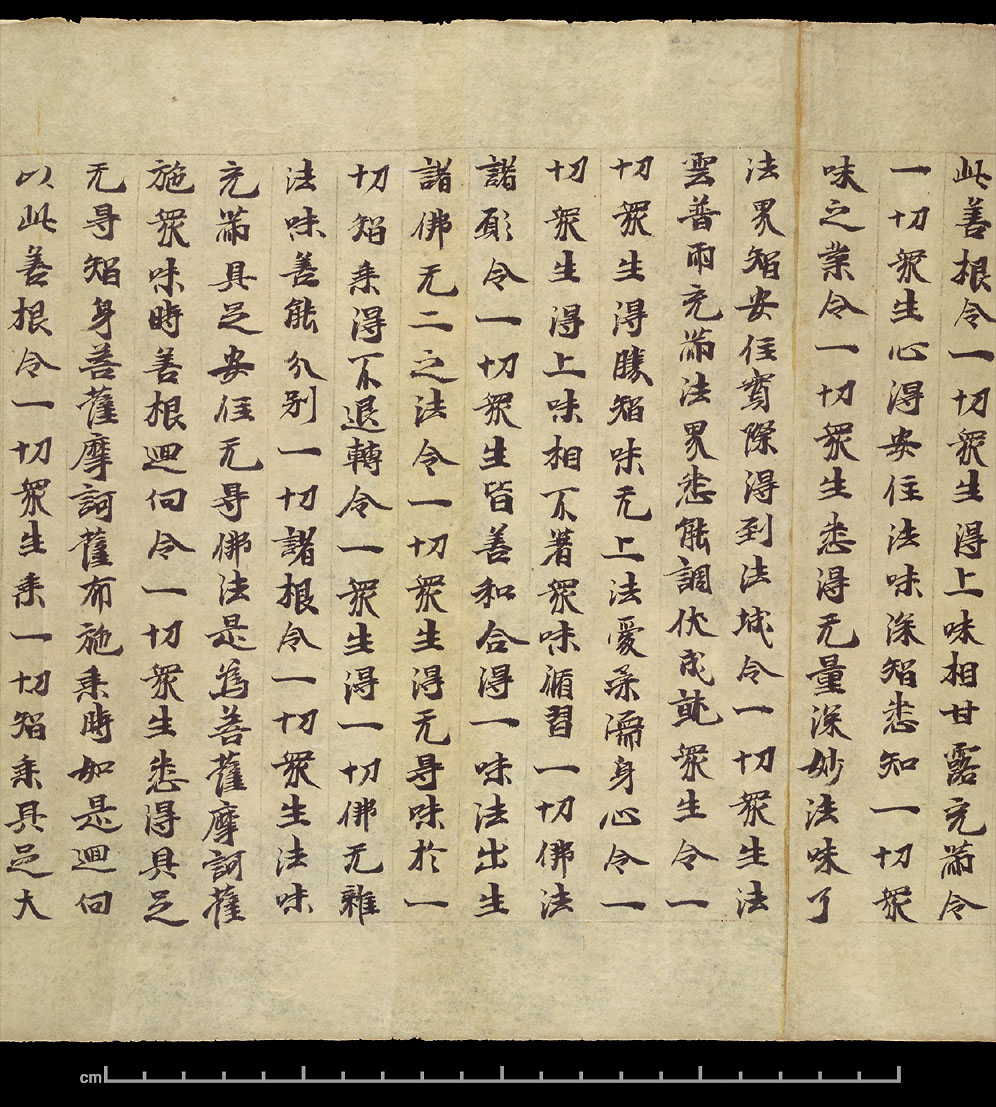 此善根令一切衆生得上味相甘露充滿令
一切衆生心得安住法味深智悉知一切衆
味之業令一切衆生悉得无量深妙法味了
法界智安住實際得到法城令一切衆生法
雲普雨充滿法界悉能調伏成就衆生令一
切衆生得勝智味无上法愛柔濡身心令一
切衆生得上味相不著衆味脩習一切佛法
諸願令一切衆生皆善和合得一味法出生
諸佛无二之法令一切衆生得无㝵味於一
切智乘得不退轉令一衆生得一切佛无雜
法味善能分别一切諸根令一切衆生法味
充滿具足安住无㝵佛法是為菩薩摩訶薩
施衆味時善根迴向令一切衆生悉得具足
无㝵智身菩薩摩訶薩布施乘時如是迴向
以此善根令一切衆生乘一切智乘具足大
cm